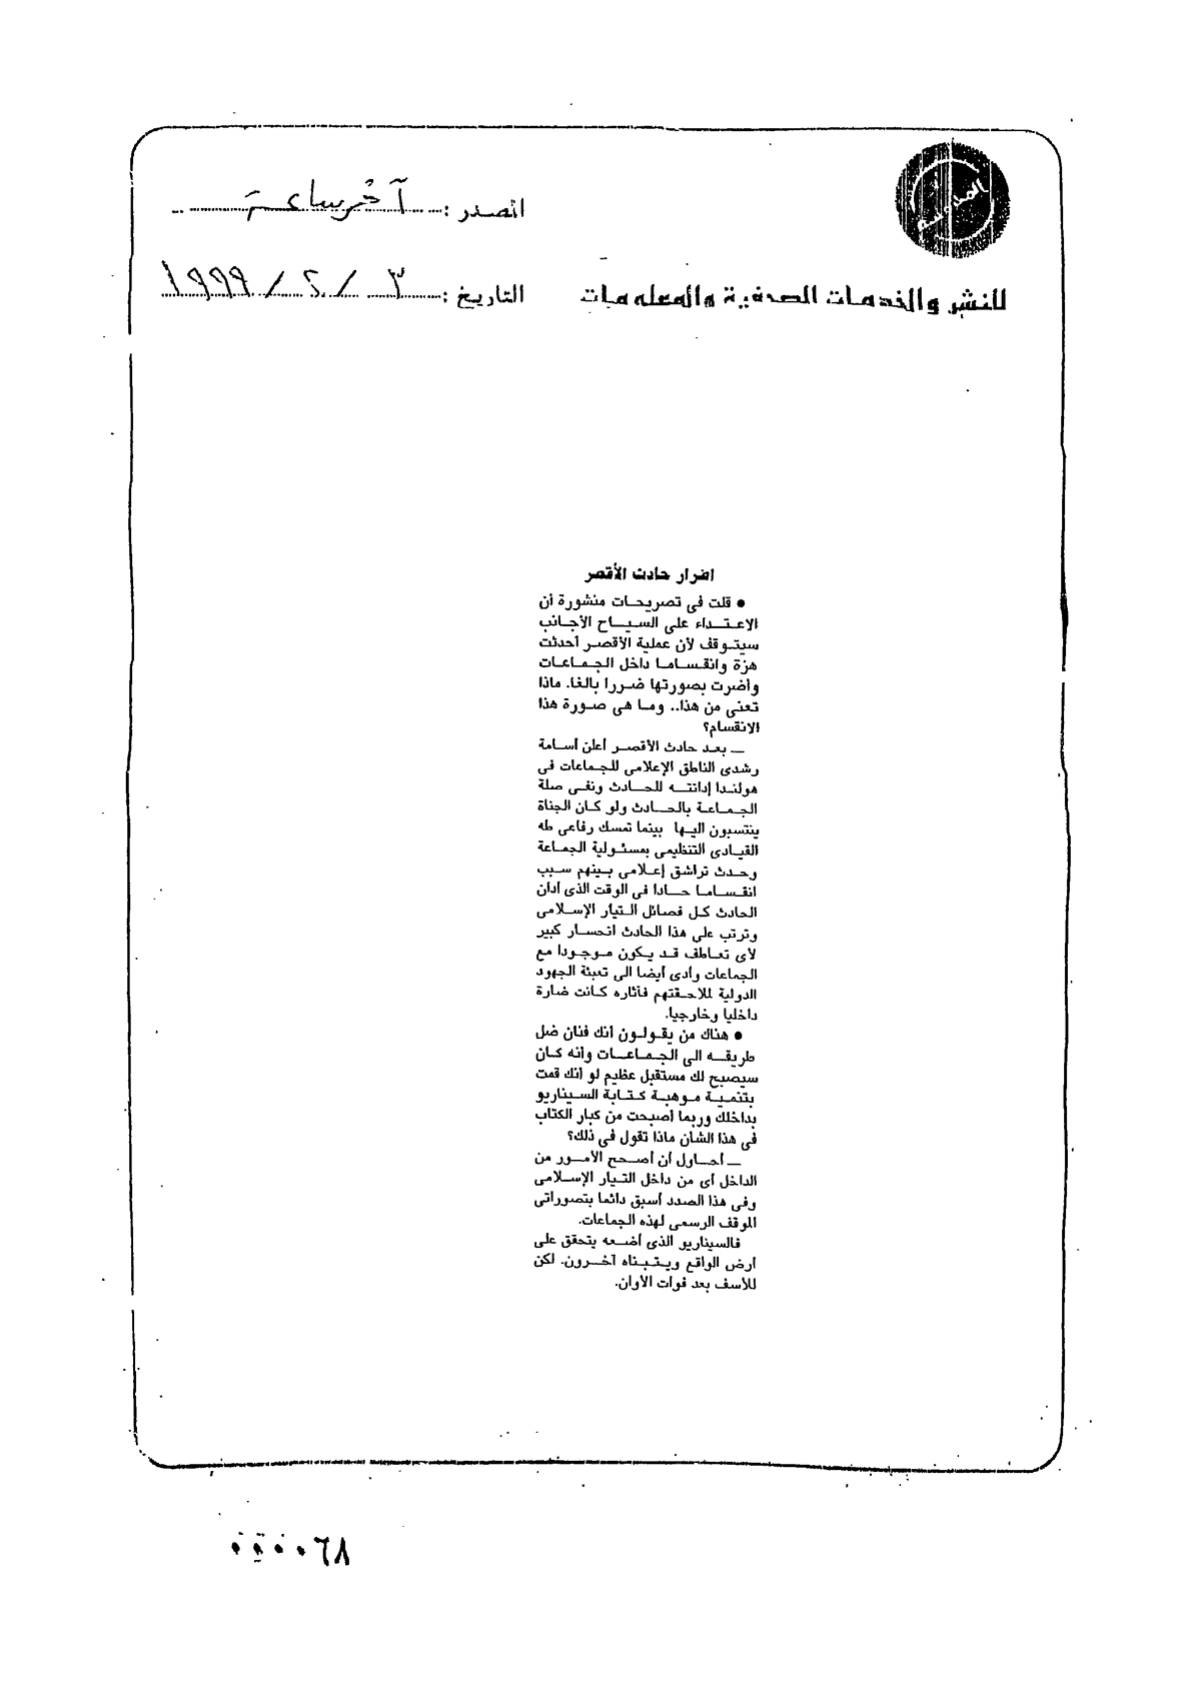 المصدر : آخر ساعة
للنشر والخدمات الصحفية والمعلومات
التاريخ : ٣ / ٢ / ١٩٩٩
اضرار حادث الأقصر
● قلت فى تصريحات منشورة أن
الاعتداء على السياح الأجانب
سيتوقف لأن عملية الأقصر أحدثت
هزة وانقساما داخل الجماعات
وأضرت بصورتها ضررا بالغا. ماذا
تعنى من هذا.. وما هى صورة هذا
الانقسام؟
ــ بعد حادث الأقصر أعلن أسامة
رشدى الناطق الإعلامى للجماعات فى
هولندا إدانته للحادث ونفى صلة
الجماعة بالحادث ولو كان الجناة
ينتسبون اليها بينما تمسك رفاعى طه
القيادى التنظيمى بمسئولية الجماعة
وحدث تراشق إعلامى بينهم سبب
انقساما حادا فى الوقت الذى أدان
الحادث كل فصائل التيار الإسلامى
وترتب على هذا الحادث انحسار كبير
لأى تعاطف قد يكون موجودا مع
الجماعات وأدى أيضا الى تعبئة الجهود
الدولية لملاحقتهم فآثاره كانت ضارة
داخليا وخارجيا.
● هناك من يقولون أنك فنان ضل
طريقه الى الجماعات وأنه كان
سيصبح لك مستقبل عظيم لو أنك قمت
بتنمية موهبة كتابة السيناريو
بداخلك وربما أصبحت من كبار الكتاب
فى هذا الشان ماذا تقول فى ذلك؟
ــ أحاول أن أصحح الأمور من
الداخل أى من داخل التيار الإسلامى
وفى هذا الصدد أسبق دائما بتصوراتى
الموقف الرسمى لهذه الجماعات.
فالسيناريو الذى أضعه يتحقق على
أرض الواقع ويتبناه آخرون. لكن
للأسف بعد فوات الأوان.
٠٠٠٠٦٨